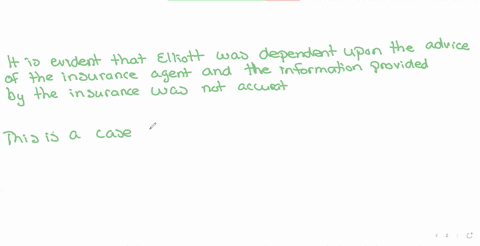 It is evident that Elliott was dependent upon the advice
of the insurance agent and the information provided
by the insurance was not accuat
This is a case